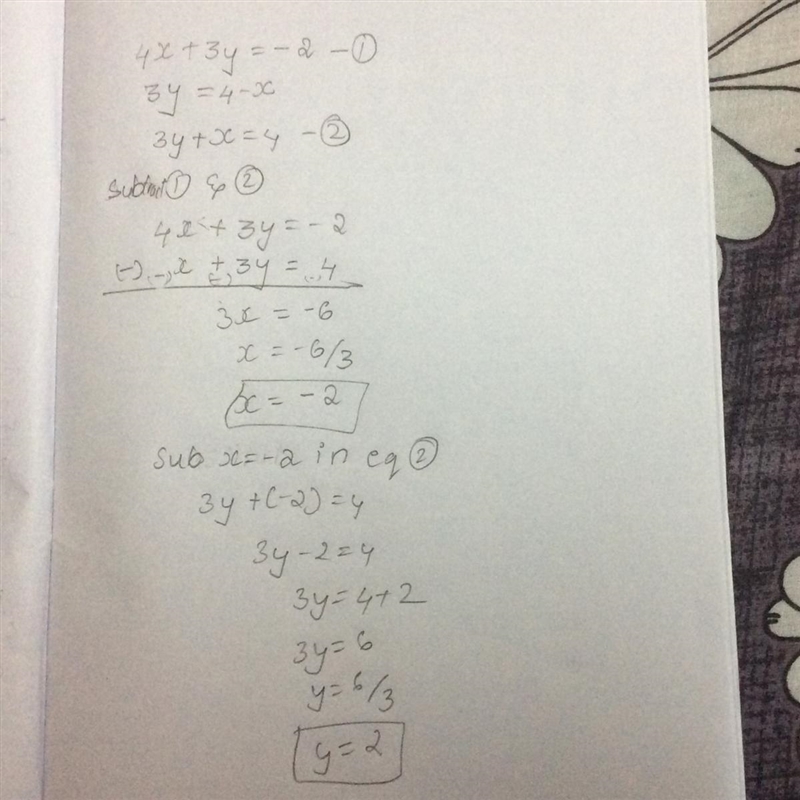 4x + 3y = -2 - ①
3y = 4 - x
3y + x = 4 - ②
① & ②
4x + 3y = -2
(-) (-) x + (-) 3y = (-) 4
3x = -6
x = -6/3
x = -2
sub x = -2 in eq ②
3y + (-2) = 4
3y - 2 = 4
3y = 4 + 2
3y = 6
y = 6/3
y = 2